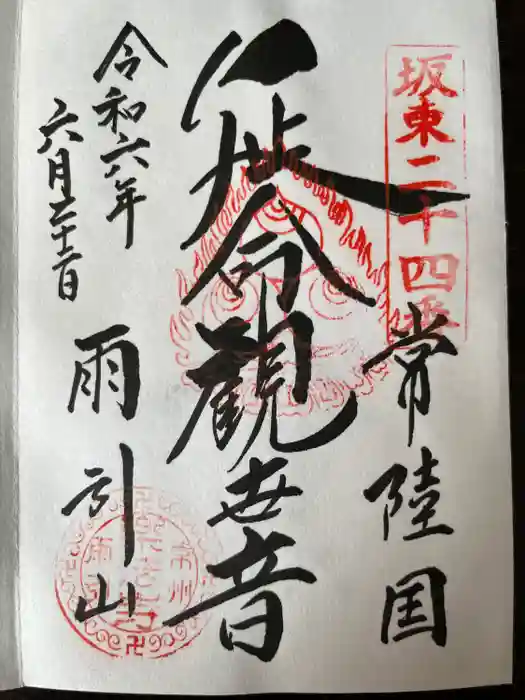 坂東二十四番
常陸国
延命觀世音
令和六年
六月二十二日
雨引山